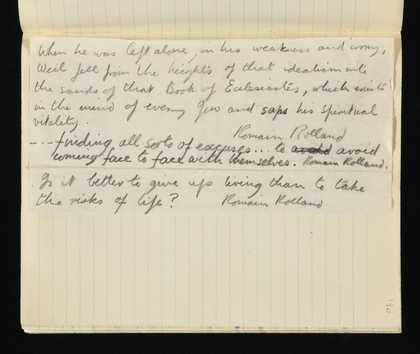 When he was left alone, in his weakness and irony,
Weil fell from the heights of that idealism into
the sands of that Book of Eclesiastes, which exists
in the mind of every Jew and saps his spiritual
vitality.
Romain Rolland
--- finding all sorts of excuses... to avoid avoid
coming face to face with themselves. Romain Rolland.
Is it better to give up living than to take
the risks of life? Romain Rolland